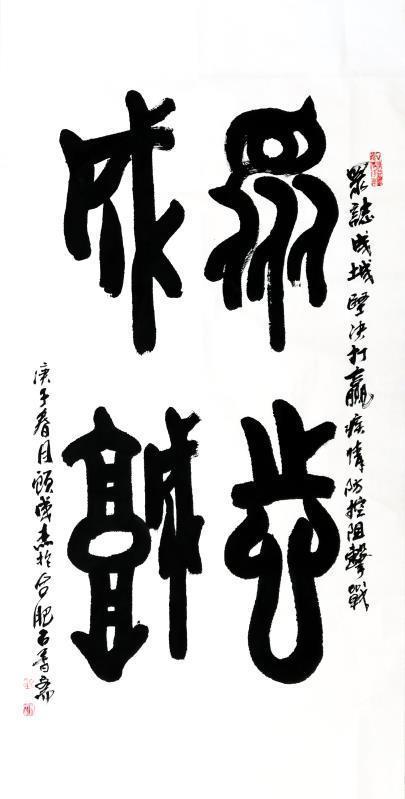 眾誌成城堅決打贏疫情防控阻擊戰
眾志
成城
庚子春月顧成杰於合肥石齋